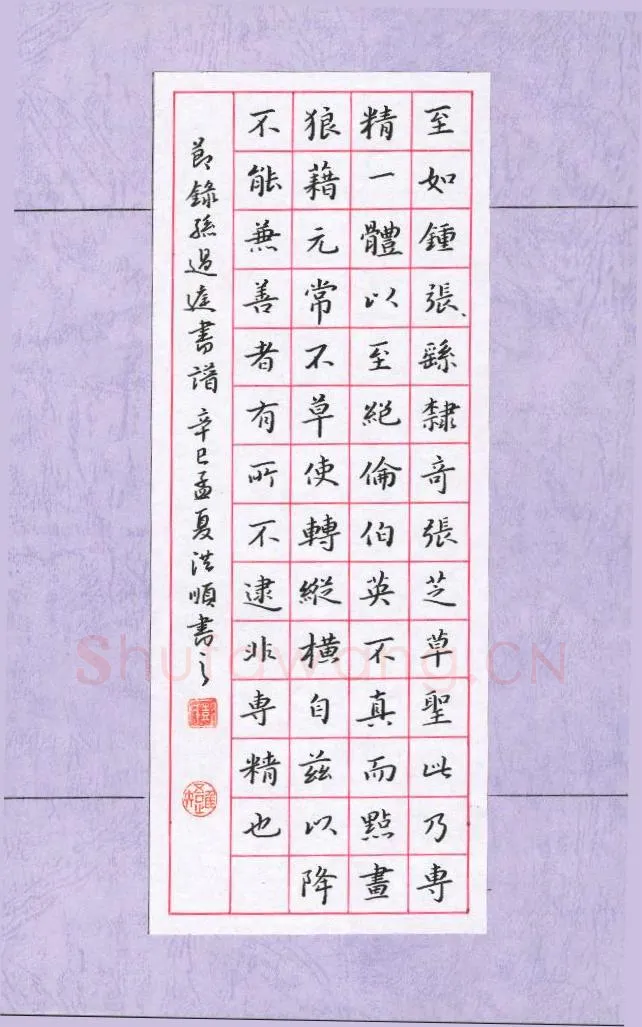 至如鍾張、繇隸奇張芝草聖此乃專
精一體以至絕倫伯英不真而點畫
狼藉元常不草使轉縱橫自茲以降
不能兼善者有所不逮非專精也
節錄孫過庭書譜 辛巳孟夏洪順書之
Shufawang.CN